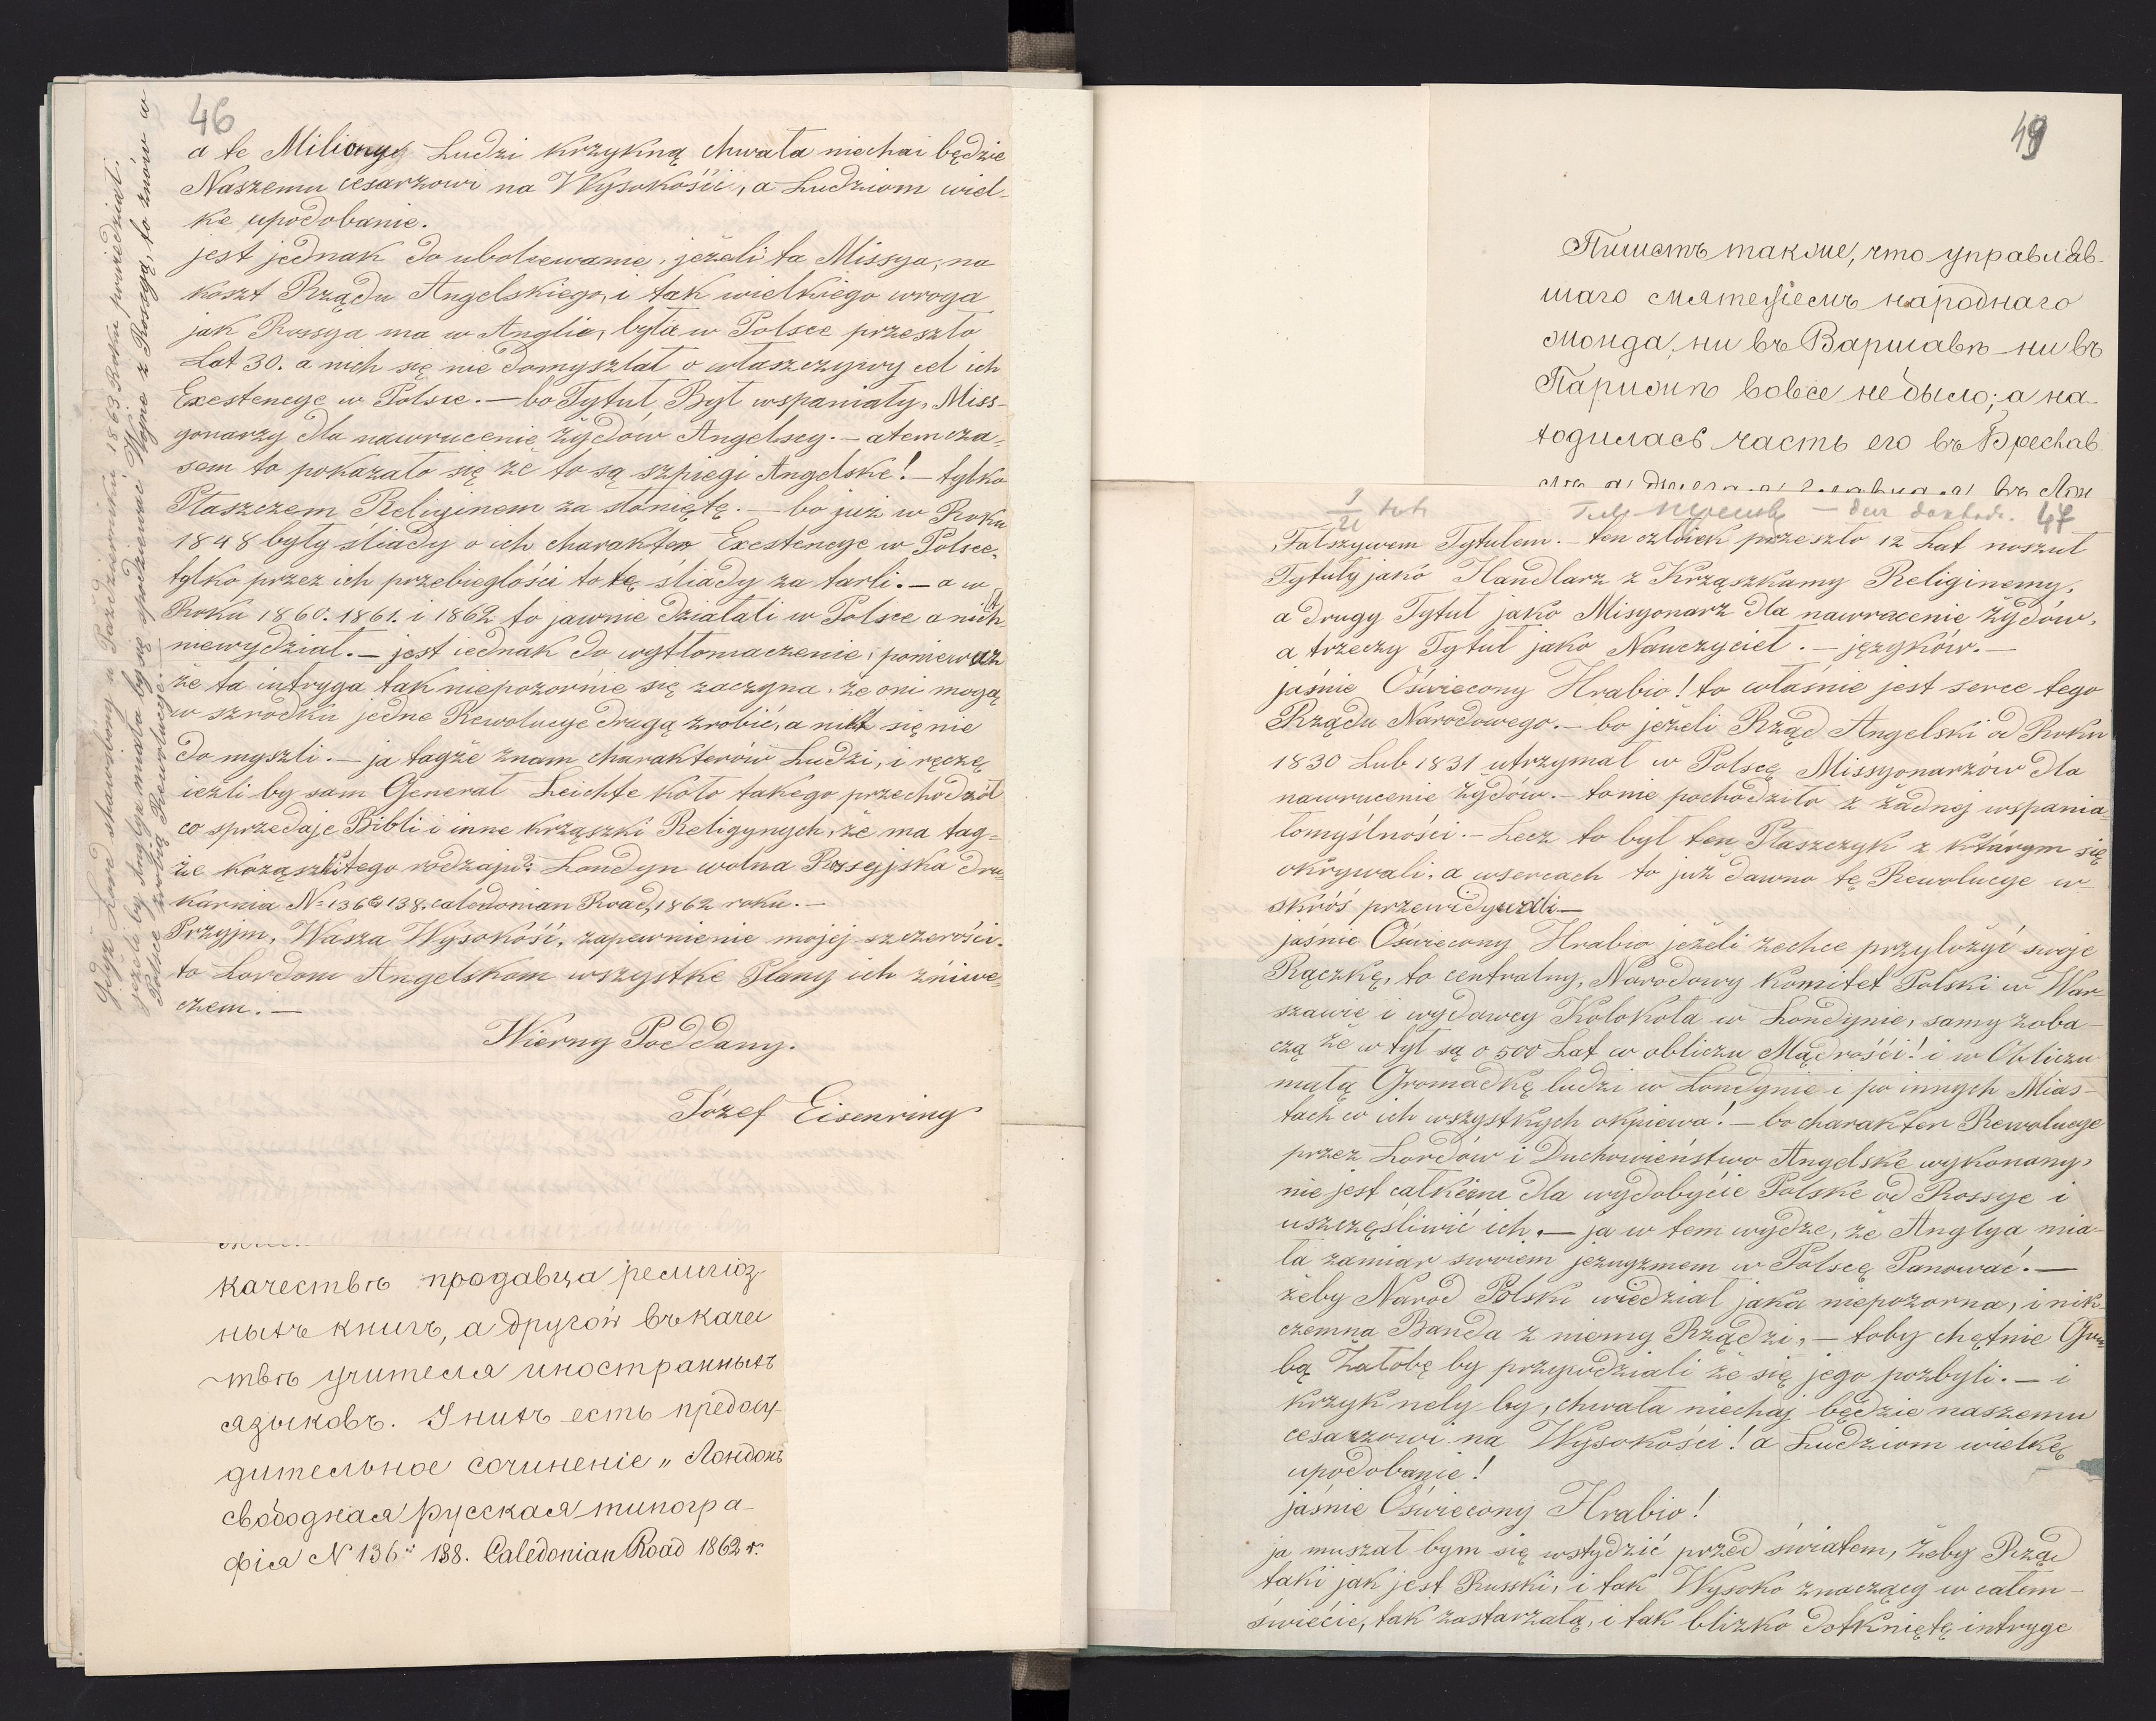 46
a te Miliony Ludzi krzykną chwała niechai będzie
Naszemu cesarzowi na Wysokośii, a Ludziom wiel-
ke upodobanie.
jest jednak do ubolewanie, jeżeli ta Missya, na
koszt Rządu Angelskiego, i tak wielkiego wroga
jak Rossya ma w Anglie, była w Polsce przeszło
Lat 30. a nich się nie domyszlał o właszczywy cel ich
Exestencye w Polsce. — bo Tytuł Był wspaniały, Miss-
yonarzy dla nawrucenie Żydów Angelscy. — a tem cza-
sem to pokazało się że to są szpiegi Angelske! — tylko
Płaszczem Religinem za słonięte. — bo już w Roku
1848 były śliady o ich charakter Exestencye w Polsce,
tylko przez ich przebiegłości to tę śliady za tarli. — a w
Roku 1860. 1861. i 1862 to jawnie działali w Polsce a nich
niewydział. — jest iednak do wytłomaczenie, poniewasz
że ta intryga tak niepozornie się zaczyna, że oni mogą
w szrodku jedne Rewolucye drugą zrobić, a nikt się nie
domyszli. — ja tagże znam charakterów Ludzi, i ręczę
ieżli by sam Generał Leichte koło takego przechodził
co sprzedaje Bibli i inne krząszki Religynych, że ma tag-
że tego rodzaju: Londyn wolna Rossyjska dru-
karnia N 136 & 138. caledonian Road, 1862 roku. —
Przyjm, Wasza Wysokość, zapewnienie mojej szczerości.
to Lordom Angelskom wszystke Plany ich zniwe-
czem. —
Wierny Poddany.
Józef Eisenring
Gdyż Lord w Październiku 1863 Roku powiedział:
jeżeli by Anglye miała by się spodziewać Wojne z Rossyą, to znów w
Polsce zrobią Rewolucye. —
качествѣ продавца религіоз-
ныхъ книгъ, а другой въ качес
твѣ учителя иностранныхъ
языковъ. У нихъ есть предосу-
дительное сочиненіе „Лондонъ
свободная русская типогра-
фія N 136 & 138. Caledonian Road 1862 г.
49
Пишетъ также, что управляв-
шаго мятежемъ народнаго
жонда, ни въ Варшавѣ ни въ
Парижѣ вовсе не было; а на-
ходилась часть его въ Бреслав
47
Fałszywem Tytułem. — ten człowiek przeszło 12 Lat noszuł
Tytuły jako Handlarz z Krząszkamy Religinemy,
a drugy Tytuł jako Misyonarz dla nawrucenie Żydów,
a trzeczy Tytuł jako Nauczyciel. — języków. —
jaśnie Oświecony Hrabio! to właśnie jest serce tego
Rządu Narodowego. — bo jeżeli Rząd Angelski od Roku
1830 Lub 1831 utrzymał w Polscę Missyonarzów dla
nawrucenie żydów. — to nie pochodziło z żadnej wspania-
łomyślności. — Lecz to był ten Płaszczyk z którym się
okrywali, a wsercach to już dawno tę Rewolucye w
skróś przewidywali —
jaśnie Oświecony Hrabio jeżeli zechce przyłożyć swoje
Rączkę, to centralny, Narodowy Komitet Polski w War-
szawie i wydawcy Kolokoła w Londynie, samy zoba-
czą że w tył są o 500 Lat w obliczu Mądrośći! i w Obliczu
małą Gromadkę ludzi w Londynie i po innych Mias-
tach co ich wszystkych okpiewa! — bo charakter Rewolucye
przez Lordów i Duchowieństwo Angelske wykonany,
nie jest całkiem dla wydobyćie Polske od Rossye i
uszczęśliwić ich. — ja w tem wydze, że Anglya mia-
ła zamiar swoiem jezuyzmem w Polscę Panować. —
żeby Narod Polski wiedział jaka niepozorna, i nik-
czemna Banda z niemy Rządzi, — toby chętnie Gru-
bą Żałobę by przywdziali że się jego pozbyli. — i
krzyknely by, chwała niechaj będzie naszemu
cesarzowi na Wysokości! a Ludziom wielkę
upodobanie!
jaśnie Oświecony Hrabio!
ja muszał bym się wstydzić przed światem, żeby Rząd
taki jak jest Russki, i tak Wysoko znaczący w całem
świećie, tak zastarzałą, i tak blizko dotkniętę intryge